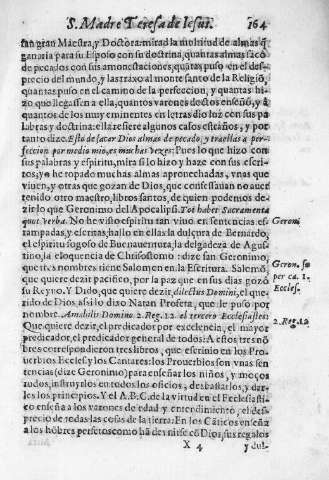 S. Madre Teresa de Iesus. 164
tan gran Maestra, y Doctora: mirad la multitud de almas q̃
ganaria para su Esposo con su doctrina, quantas almas sacò
de pecados con sus amonestaciones, quãtas puso en el des-
precio del mundo, y las traxo al monte santo de la Religiõ,
quantas puso en el camino de la perfeccion, y quantas hi-
zo que llegassen a ella, quantos varones doctos enseñò, y à
quantos de los muy eminentes en letras dio luz con sus pa
labras y doctrina: ella refiere algunos casos estraños, y por
tanto dize. Esto de sacar Dios almas de pecado, y traellas a per-
feccion por medio mio, es muchas vezes: Pues lo que hizo con
sus palabras y espiritu, mira si lo hizo y haze con sus escri-
tos, yo he topado muchas almas aprovechadas, vnas que
viuen, y otras que gozan de Dios, que confessauan no auer
tenido otro maestro, libros santos, de quien podemos de-
zir lo que Geronimo del Apocalipsi. Tot habet Sacramenta
quot verba. No he visto espiritu tan viuo en sentencias es-
tampadas, y escritas, hallo en ellas la dulçura de Bernardo,
el espiritu fogoso de Buenauentura, la delgadeza de Agus-
tino, la eloquencia de Chrisostomo: dize san Geronimo,
que tres nombres tiene Salomon en la Escritura. Salomõ,
que quiere dezir pacifico, por la paz que en sus dias gozò
su Reyno. Y Dido, que quiere dezir, dilectus Domini, el que-
rido de Dios, assi lo dixo Natan Profeta, que le puso por
nombre. Amabilis Domino. 2. Reg. 12. el tercero Ecclesiastes:
Que quiere dezir, el predicador por excelencia, el mayor
predicador, el predicador general de todos: A estos tres nõ
bres correspondieron tres libros, que escriuio en los Prou
erbios Ecclesi y los Cantares: los Prouerbios son vnas sen
tencias (dize Geronimo) para enseñar los niños, y moços
rodos, instruylos en todos los oficios, desbastarlos, y dar-
les los principios. Y el A.B.C. de la virtud en el Ecclesiasti-
co enseña a los varones de edad y entendimiento, el des-
precio de todas las cosas de la tierra: En los Cãticos enseña
a los hõbres perfetos como hã de vnirse cõ Dios, sus regalos
X 4 y dul-
Geroni.
Geron. su
per ca. 1.
Eccles.
2. Reg. 12